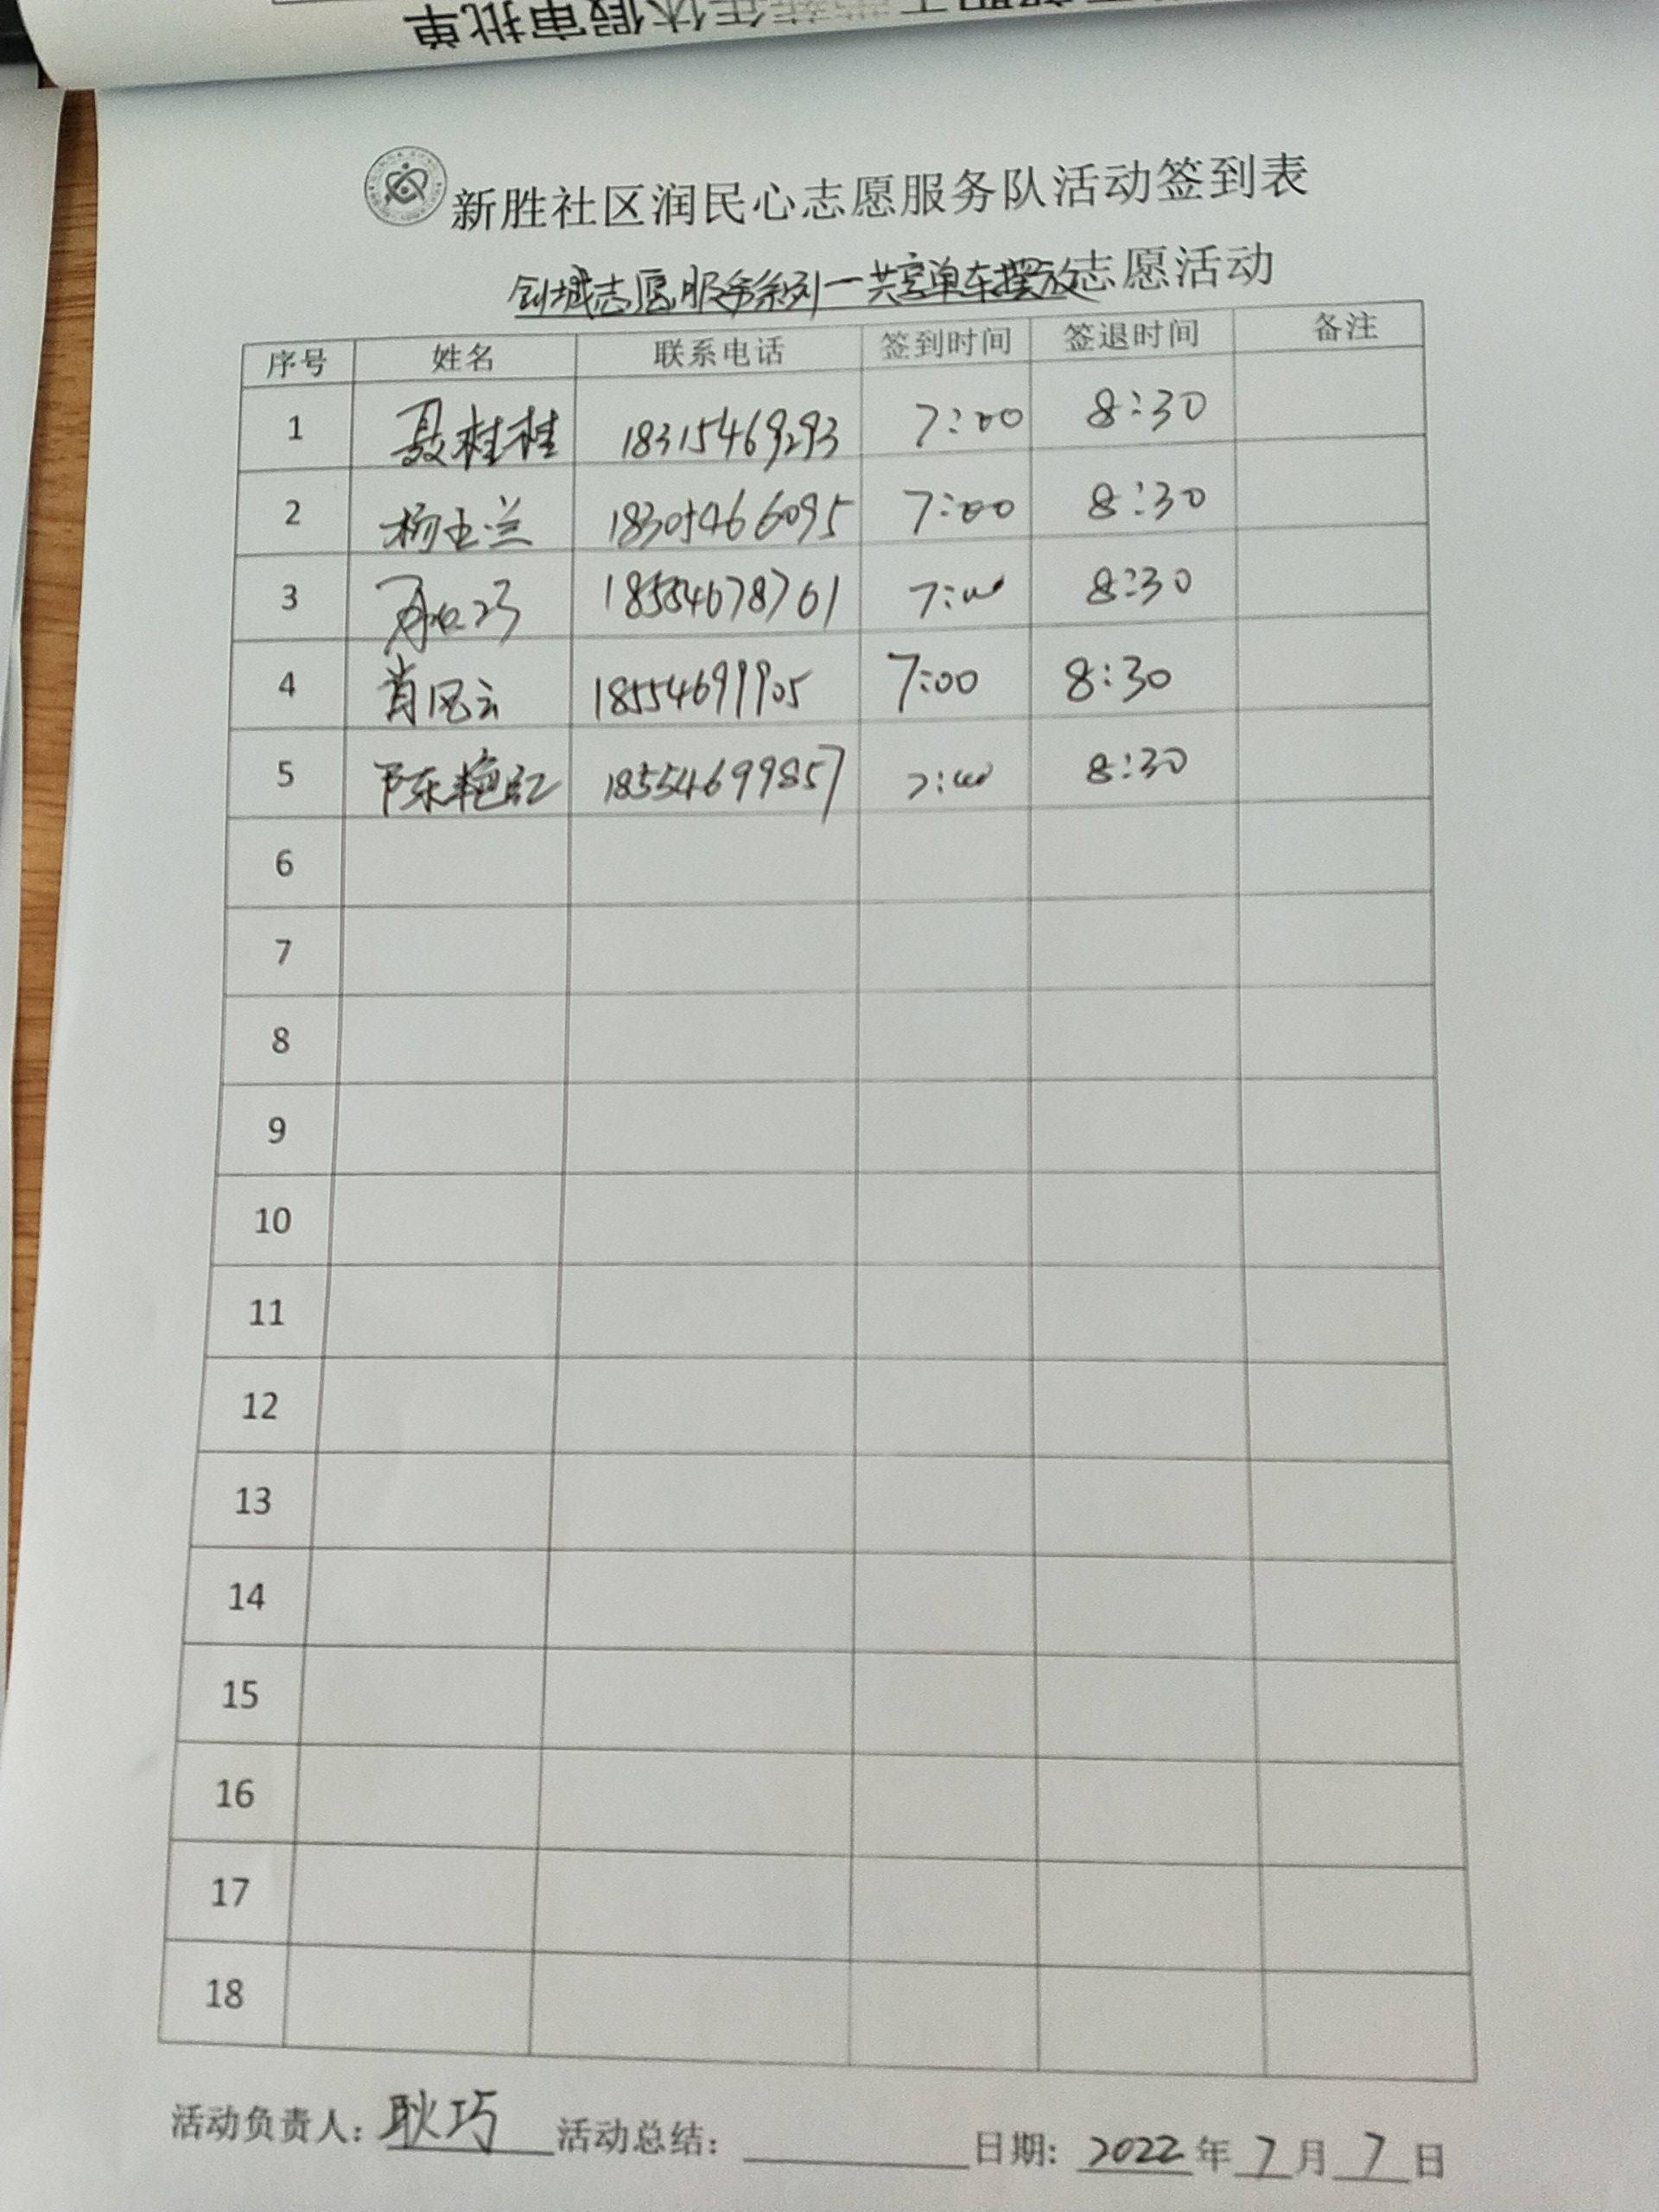 年休假审批单
新胜社区润民心志愿服务队活动签到表
创城志愿服务系列一共享单车摆放志愿活动
序号 姓名 联系电话 签到时间 签退时间 备注
1 聂桂桂 18315469293 7:00 8:30
2 杨玉兰 18305466095 7:00 8:30
3 18554678761 7:00 8:30
4 肖风云 18554691905 7:00 8:30
5 陈艳红 18554699857 7:00 8:30
6
7
8
9
10
11
12
13
14
15
16
17
18
活动负责人: 耿巧 活动总结: 日期: 2022年7月7日